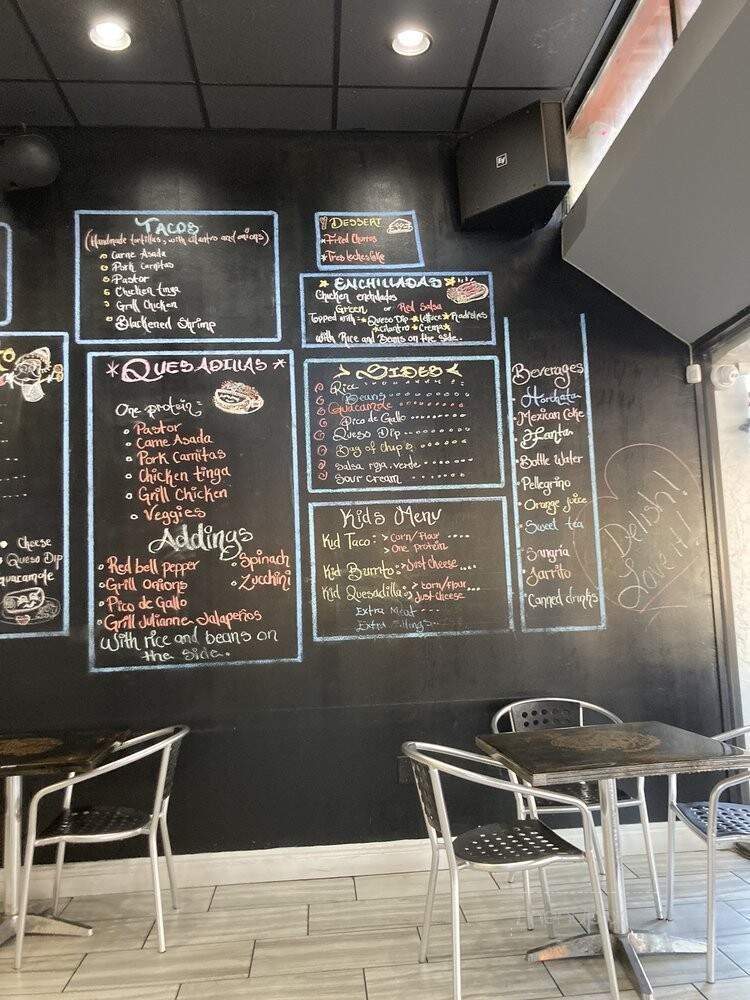 TACOS
(Handmade tortillas, with cilantro and onions)
Carne Asada
Pork Carnitas
Pastor
Chicken tinga
Grill Chicken
Blackened Shrimp
DESSERT
Fried Churros
Tres leches Cake
ENCHILLADAS
Chicken enchiladas
Green or Red Salsa
Topped with: Queso Dip lettuce Radishes
cilantro Crema
With Rice and Beans on the side.
QUESADILLAS
One protein:
Pastor
Carne Asada
Pork Carnitas
Chicken tinga
Grill Chicken
Veggies
Addings
Red bell pepper
Grill onions
Pico de Gallo
Grill Julianne Jalapeños
Spinach
Zucchini
With rice and beans on
the side.
SIDES
Rice
Beans
Guacamole
Pico de Gallo
Queso Dip
Bag of Chips
Salsa roja, verde
Sour Cream
Kids Menu
Kid Taco: > Corn/Flour
> One protein
Kid Burrito: > Just Cheese
Kid Quesadilla: > corn/flour
> Just cheese
Extra Meat
Extra fillings
Beverages
Horchata
Mexican Coke
Fanta
Bottle Water
Pellegrino
Orange Juice
Sweet tea
Sangria
Jarrito
Canned drinks
Delish!
Love it!
Cheese
Queso Dip
guacamole
EV